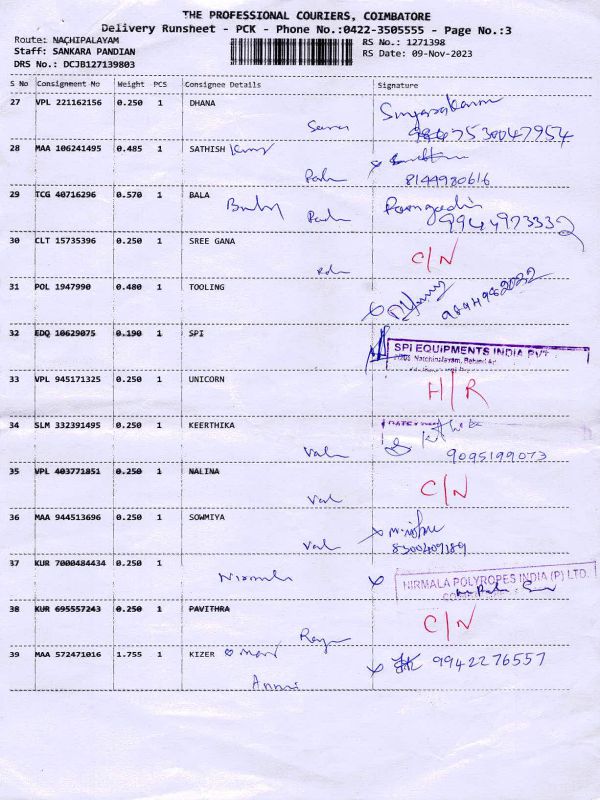 THE PROFESSIONAL COURIERS, COIMBATORE
Delivery Runsheet - PCK - Phone No.:0422-3505555 - Page No.:3
Route: NACHIPALAYAM
Staff: SANKARA PANDIAN
DRS No.: DCJB127139803
RS No.: 1271398
RS Date: 09-Nov-2023
S No Consignment No Weight PCS Consignee Details Signature
27 VPL 221162156 0.250 1 DHANA
7530047954
28 MAA 106241495 0.485 1 SATHISH
8144980616
29 TCG 40716296 0.570 1 BALA
9944973332
30 CLT 15735396 0.250 1 SREE GANA
C/N
31 POL 1947990 0.480 1 TOOLING
32 EDQ 10629075 0.190 1 SPI
SPI EQUIPMENTS INDIA PVT
33 VPL 945171325 0.250 1 UNICORN
H/R
34 SLM 332391495 0.250 1 KEERTHIKA
Val
9095199073
35 VPL 403771851 0.250 1 NALINA
Val
C/N
36 MAA 944513696 0.250 1 SOWMIYA
Val
8300409189
37 KUR 7000484434 0.250 1
NIRMALA POLYROPES INDIA (P) LTD.
38 KUR 695557243 0.250 1 PAVITHRA
C/N
39 MAA 572471016 1.755 1 KIZER
9942276557